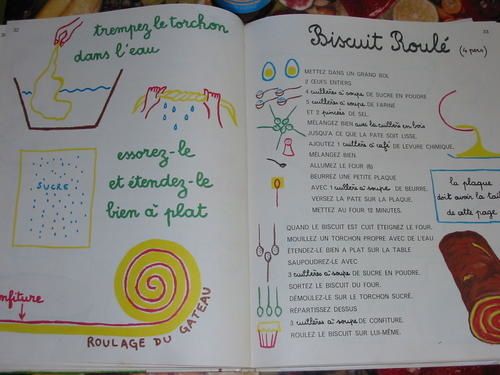 32
trempez le torchon
dans l'eau
essorez-le
et étendez-le
bien à plat
SUCRE
confiture
ROULAGE DU GATEAU
33
Biscuit Roulé (4 pers)
METTEZ DANS UN GRAND BOL
2 ŒUFS ENTIERS
4 cuillères à soupe DE SUCRE EN POUDRE
5 cuillères à soupe DE FARINE
ET 2 pincées DE SEL.
MÉLANGEZ BIEN avec la cuillère en bois
JUSQU'A CE QUE LA PATE SOIT LISSE.
AJOUTEZ 1 cuillère à café DE LEVURE CHIMIQUE.
MÉLANGEZ BIEN.
ALLUMEZ LE FOUR (6)
BEURREZ UNE PETITE PLAQUE
AVEC 1 cuillère à soupe DE BEURRE.
VERSEZ LA PATE SUR LA PLAQUE.
METTEZ AU FOUR 12 MINUTES.
la plaque
doit avoir la tail
de cette page
QUAND LE BISCUIT EST CUIT ÉTEIGNEZ LE FOUR.
MOUILLEZ UN TORCHON PROPRE AVEC DE L'EAU
ÉTENDEZ-LE BIEN A PLAT SUR LA TABLE
SAUPOUDREZ-LE AVEC
3 cuillères à soupe DE SUCRE EN POUDRE.
SORTEZ LE BISCUIT DU FOUR.
DÉMOULEZ-LE SUR LE TORCHON SUCRÉ.
RÉPARTISSEZ DESSUS
3 cuillères à soupe DE CONFITURE.
ROULEZ LE BISCUIT SUR LUI-MÊME.